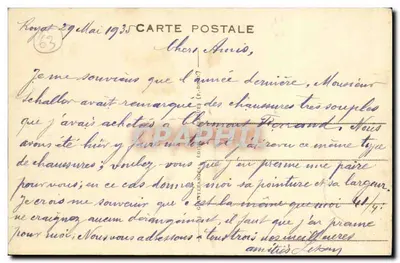 Royat 29 Mai 1935
CARTE POSTALE
63
Chers Amis,
Je me souviens que l'année dernière, Monsieur
Schaller avait remarqué des chaussures très souples
que j'avais achetés à Clermont Ferrand. Nous
avons été hier y faire un tour et j'ai revu ce même type
de chaussures; voulez-vous que j'en prenne une paire
pour vous; en ce cas donnez moi sa pointure et sa largeur.
Je crois me souvenir que c'est la même que moi 41/4.
ne craignez aucun dérangement, il faut que j'en prenne
pour moi. Nous vous adressons à tous trois nos meilleures
amitiés